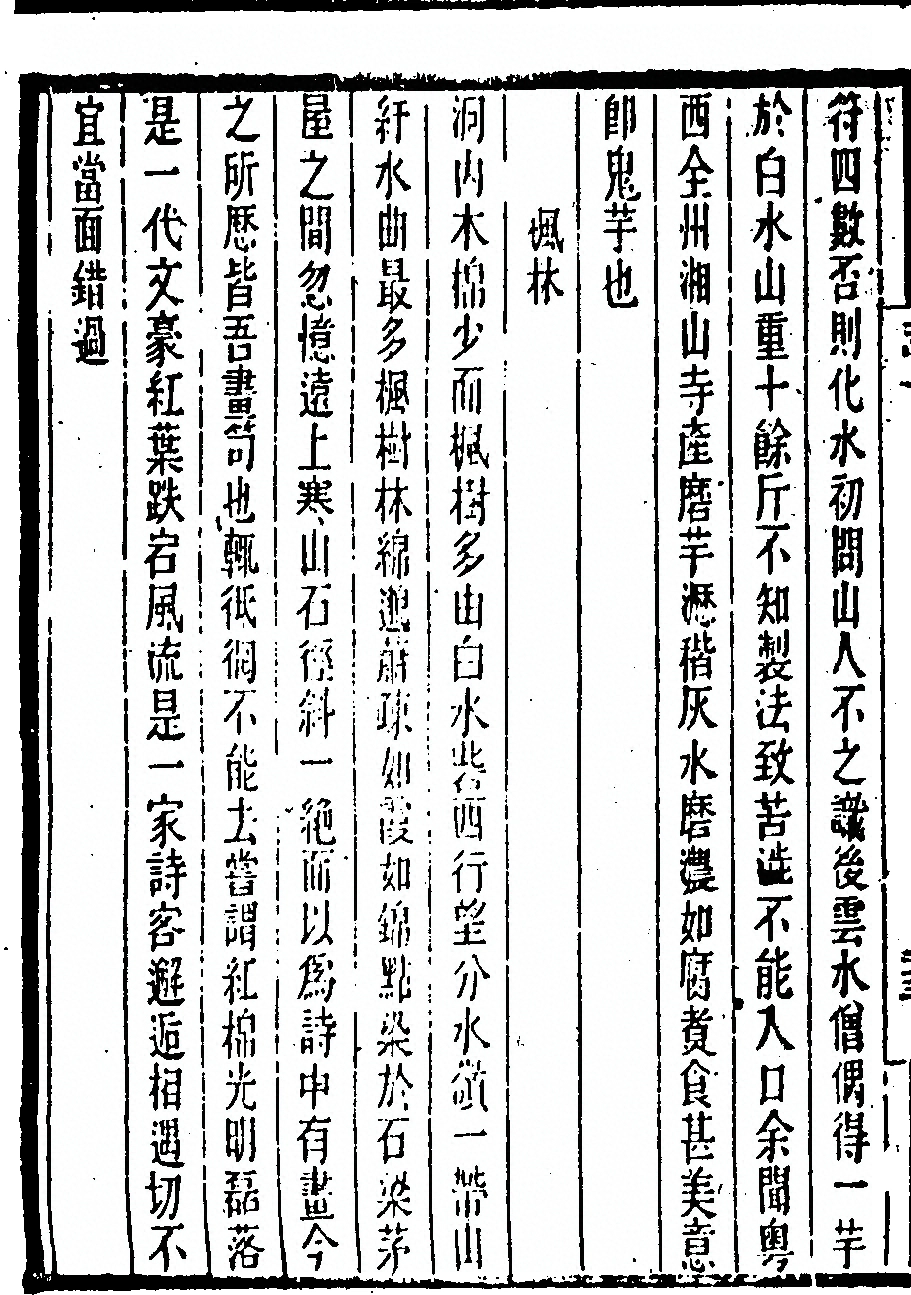 符四數否則化水初問山人不之識後雲水僧偶得一芋
於白水山重十餘斤不知製法致苦澁不能入口余聞粵
西全州湘山寺產磨芋瀝稭灰水磨濃如腐煑食甚美意
卽鬼芋也
楓林
洞內木棉少而楓樹多由白水砦西行望分水嶺一帶山
紆水曲最多楓樹林綿邈蕭疎如霞如錦點染於石梁茅
屋之間忽憶遠上寒山石徑斜一絶而以爲詩中有畫今
之所歷皆吾畫笥也輒徘徊不能去嘗謂紅棉光明磊落
是一代文豪紅葉跌宕風流是一家詩客邂逅相遇切不
宜當面錯過